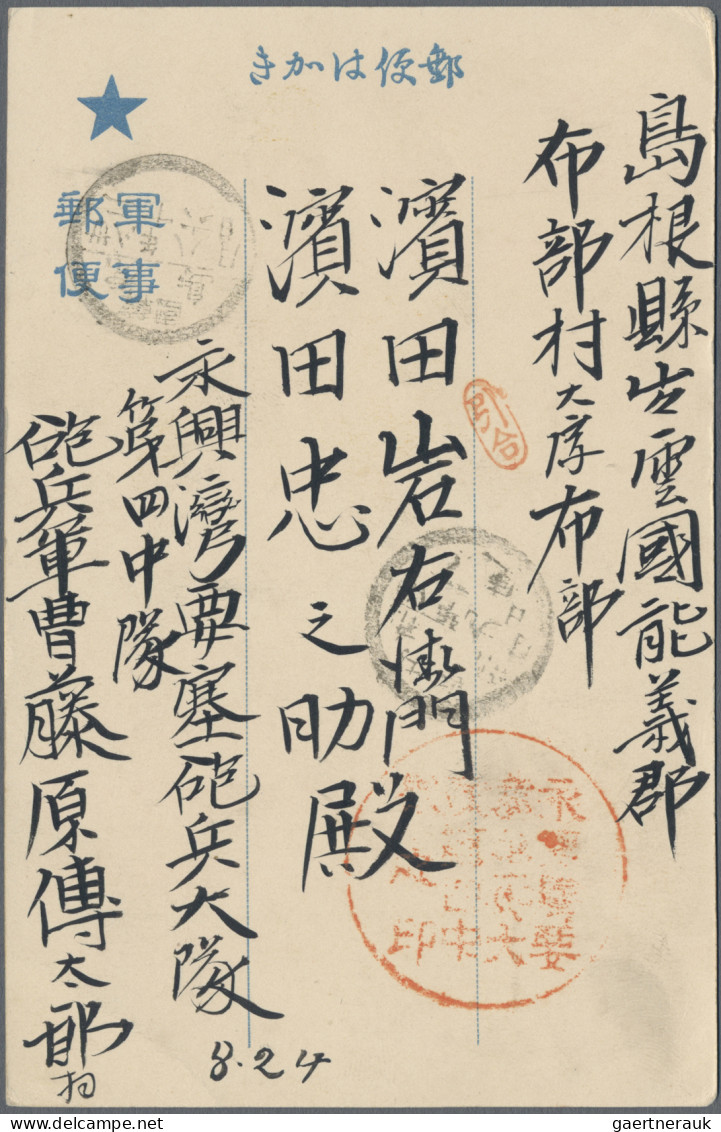 郵便はかき
軍事
郵便
島根縣出雲國能義郡
布部村大字布部
濱田岩右衛門殿
濱田忠之助殿
永興灣要塞砲兵大隊
第四中隊
砲兵軍曹藤原傳太郎
8.24
www.delcampe.net
gaertnerauk